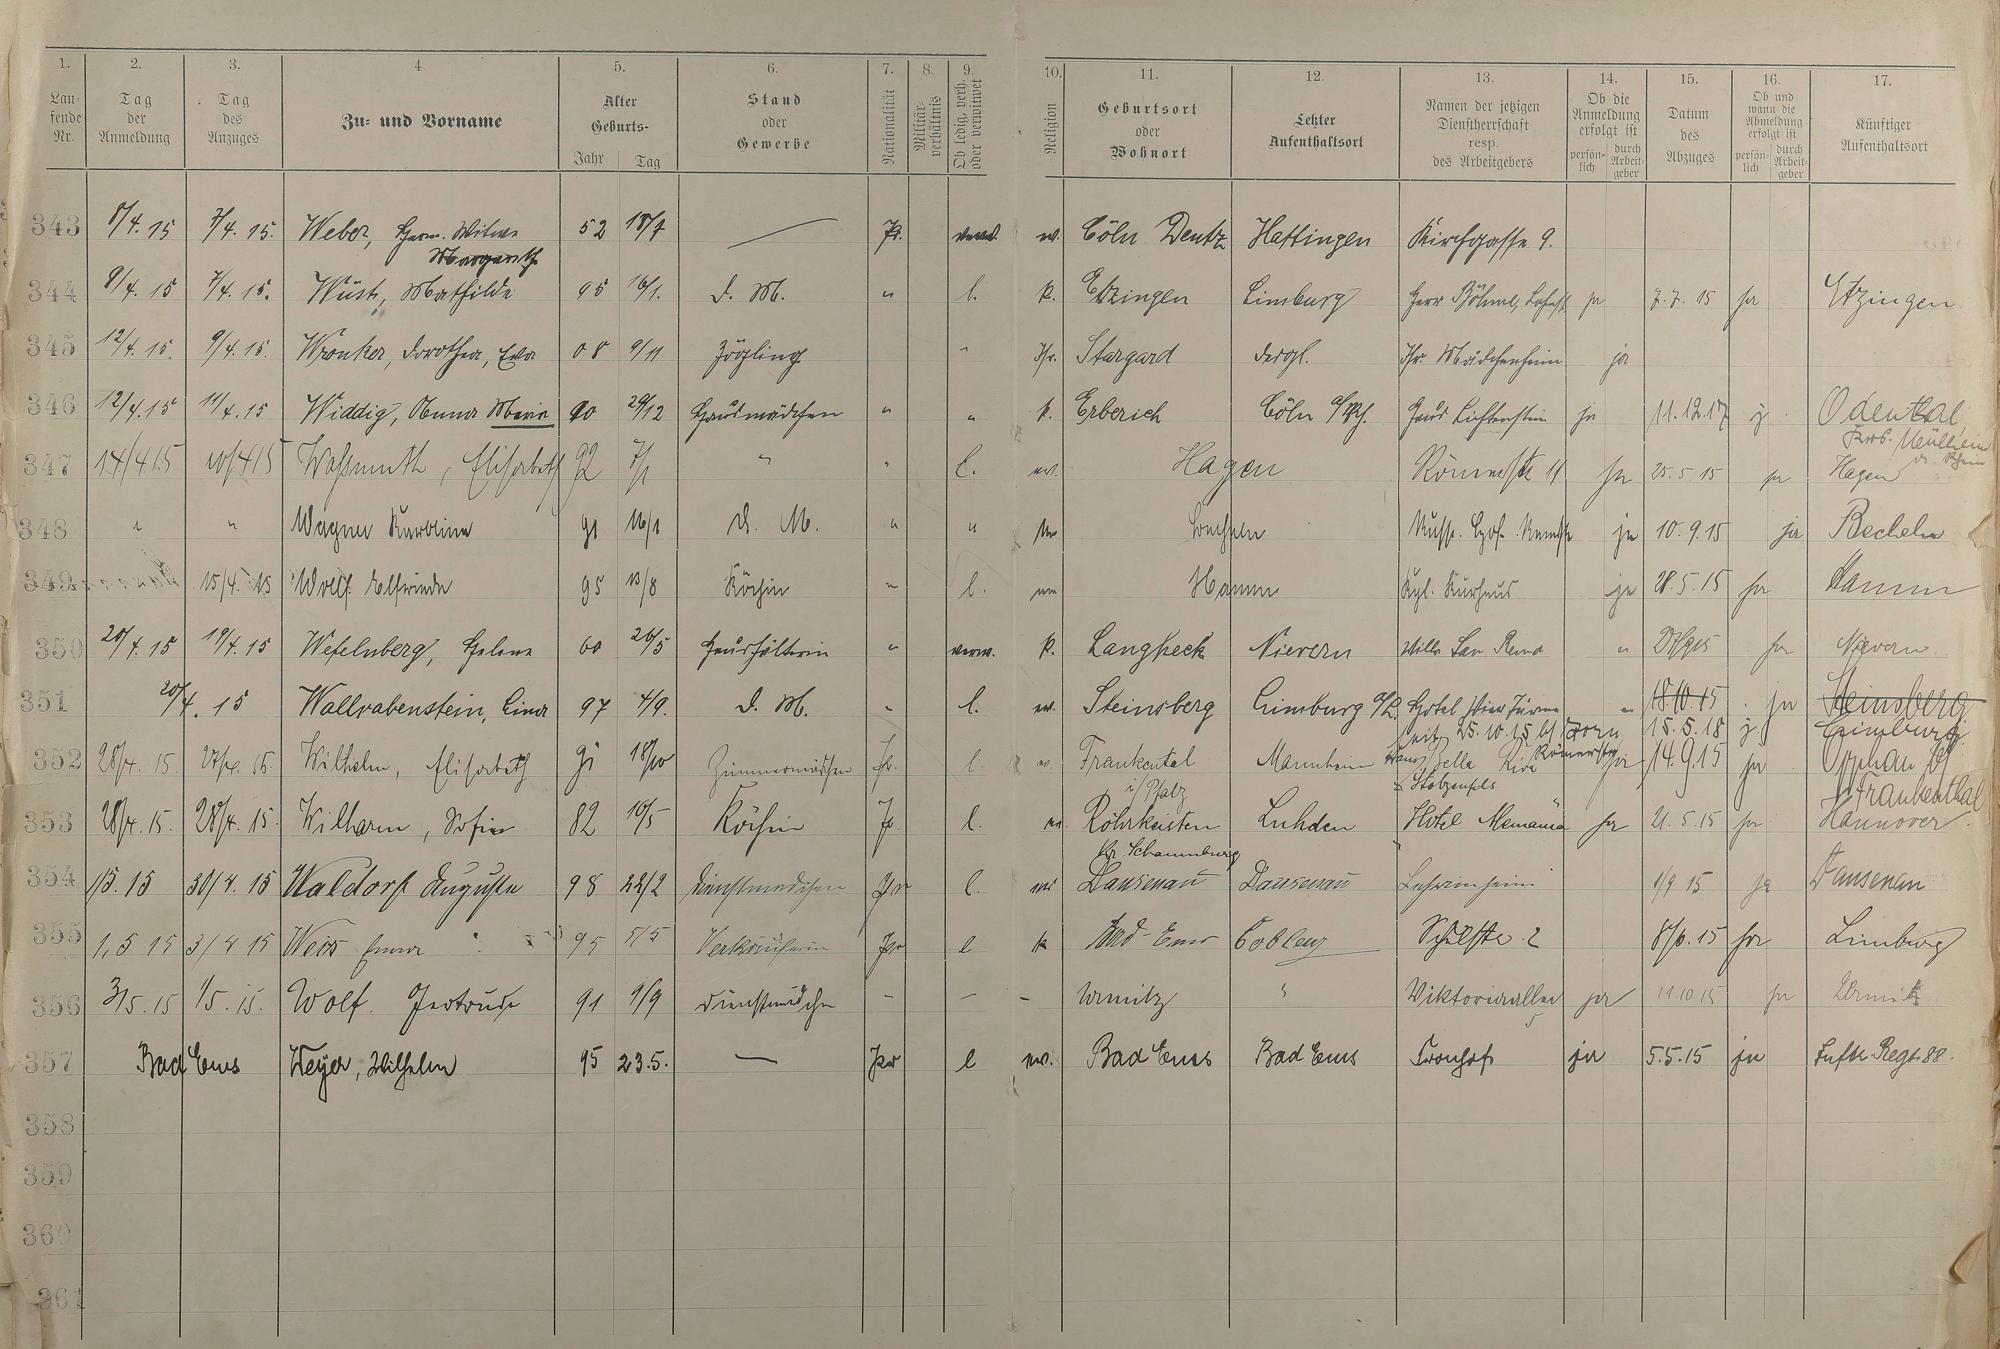 1. 2. 3. 4. 5. 6. 7. 8. 9. 10. 11. 12. 13. 14. 15. 16. 17.
Lau-fende Nr. Tag der Anmeldung Tag des Anzuges Zu- und Vorname Alter Geburts- Jahr Tag Stand oder Gewerbe Nationalität Militär-verhältnis Ob ledig, verh. oder verwitwet Religion Geburtsort oder Wohnort Letzter Aufenthaltsort Namen der jetzigen Dienstherrschaft resp. des Arbeitgebers Ob die Anmeldung erfolgt ist persön-lich durch Arbeit-geber Datum des Abzuges Ob und wann die Abmeldung erfolgt ist persön-lich durch Arbeit-geber Künftiger Aufenthaltsort
343 8/4. 15 7/4. 15. Weber, Herm. Witwe 52 18/7 — Pr. verw. ev. Cöln Deutz Hattingen Kirchgasse 9.
Margareth
344 8/4. 15 7/4. 15. Wüst, Mathilde 95 16/1. d. M. " l. k. Etzingen Limburg Herr Böhme, ja 7. 7. 15 ja Etzingen
345 12/4. 15. 9/4. 15. Wronker, Dorothea, Eva 08 9/11 Zögling " Isr. Stargard dergl. Isr. Mädchenheim ja
346 12/4. 15 11/4. 15 Widdig, Anna Maria 90 29/12 Hausmädchen " " k. Erberich Cöln a/Rh. Haus Lichtenstein ja 11. 12. 17 j. Odental
Krs. Mülheim a. Rhein
347 14/4 15 10/4 15 Waßmuth, Elisabeth 92 7/1 " " l. ev. Hagen Römerstr. 11 ja 25. 5. 15 ja Hagen
348 " " Wagner Karoline 91 16/1 d. M. " " ev Becheln Russ. Hof. ja 10. 9. 15 ja Becheln
349 15/4. 15 Wolf Elfriede 95 13/8 Köchin " l. ev Hamm Kgl. Kurhaus ja 28. 5. 15 ja Hamm
350 20/4. 15 19/4. 15 Weselnberg, Helene 60 26/5 Haushälterin " verw. k. Langheck Nievern Villa San Remo " ja Nievern
351 20/4. 15 Wallrabenstein, Lina 97 4/9. d. M. " l. ev. Steinsberg Limburg a/L. Hotel Vier Türme " 18. 10. 15 ja Steinsberg
seit 25. 10. 15 15. 5. 18 j Limburg
352 28/4. 15. 27/4. 15. Wilhelm, Elisabeth 91 18/10 Zimmermädchen Pr. l. ev. Frankental Mannheim Römerstr. ja 14. 9. 15 ja
i/Pfalz Stolzenfels Frankenthal
353 28/4. 15. 28/4. 15. Wilharm, Sofie 82 10/5 Köchin Pr. l. ev. Röhrkasten Luhden Hotel Alemania ja 21. 5. 15 ja Hannover
Kr. Schaumburg
354 1/5. 15 30/4. 15 Waldorf Auguste 98 22/2 Dienstmädchen Pr l. ev Dausenau Dausenau 1/9 15 ja Dausenau
355 1. 5 15 3/4 15 Weis Emma 95 5/5 Verkäuferin Pr l k Bad-Ems Coblenz Schulstr. 2 8/6. 15 ja Limburg
356 3/5. 15 1/5. 15. Wolf. Gertrude 91 9/9 Dienstmädchen - — - Urmitz " Viktoriaallee ja 11 10 15 ja Urmitz
5
357 Bad Ems Weyer, Wilhelm 95 23. 5. — Pr l ev. Bad Ems Bad Ems Fronhof ja 5. 5. 15 ja Inftr. Regt. 88.
358
359
360
361